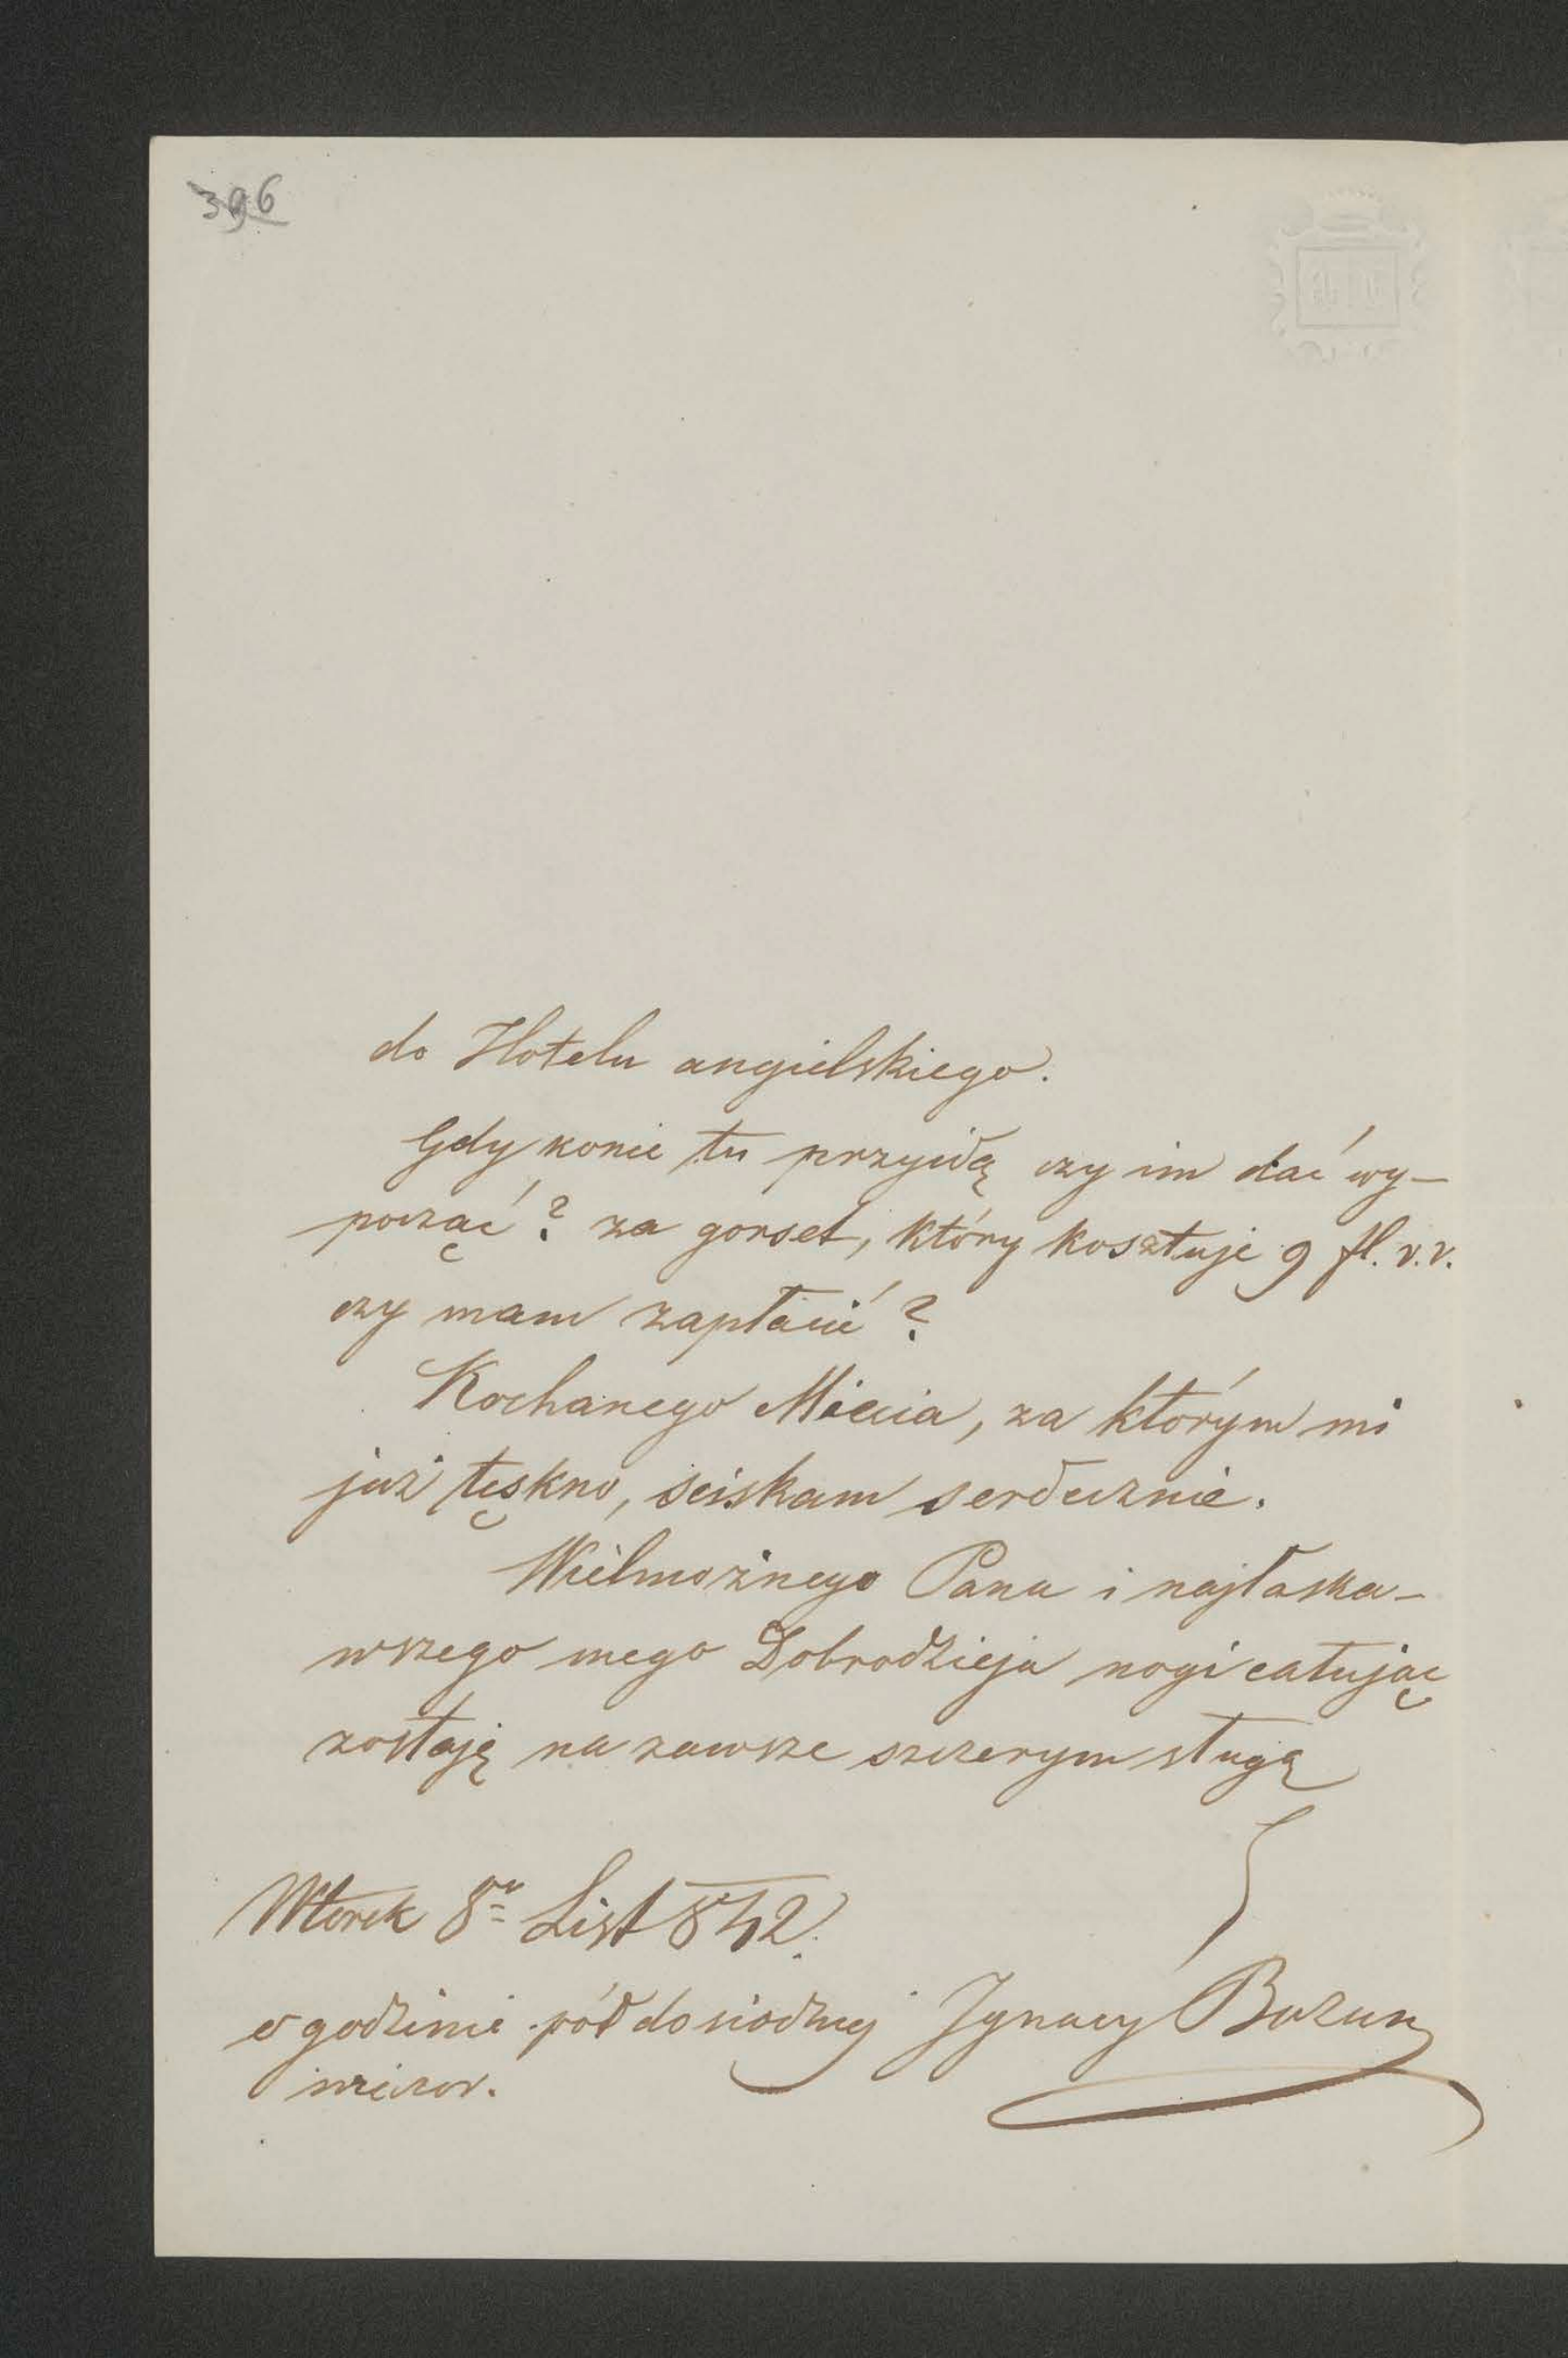 396
do Hotelu angielskiego.
Gdy konie tu przyidą czy im dać wy-
począć? za gorset, który kosztuje 9 fl. v.v.
czy mam zapłacić?
Kochanego Miecia, za którym mi
już tęskno, ściskam serdecznie.
Wielmożnego Pana i najłaska-
wszego mego Dobrodzieja nogi całując
zostaję na zawsze szczerym sługą
Wtorek 8º List 842.
o godzinie pół do siodmej Ignacy
wieczor.